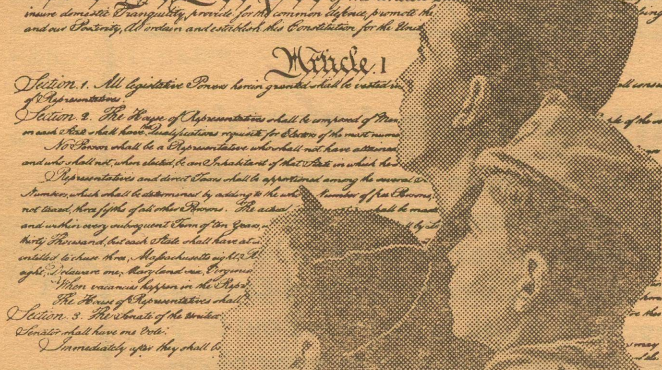 insure domestic Tranquility, provide for the common defence, promote the
and our Posterity, do ordain and establish this Constitution for the United
Article. I
Section. 1. All legislative Powers herein granted shall be vested in
of Representatives.
Section. 2. The House of Representatives shall be composed of Mem
in each State shall have the Qualifications requisite for Electors of the most nume
No Person shall be a Representative who shall not have attained
and who shall not, when elected, be an Inhabitant of that State in which he
Representatives and direct Taxes shall be apportioned among the several
Numbers, which shall be determined by adding to the whole Number of free Persons,
not taxed, three fifths of all other Persons. The actual shall be made
and within every subsequent Term of ten Years,
thirty Thousand, but each State shall have at
entitled to chuse three, Massachusetts eight, R
eight, Delaware one, Maryland six, Virginia
When vacancies happen in the Repr
The House of Representatives shall
Section. 3. The Senate of the United
Senator shall have one Vote.
Immediately after they shall b